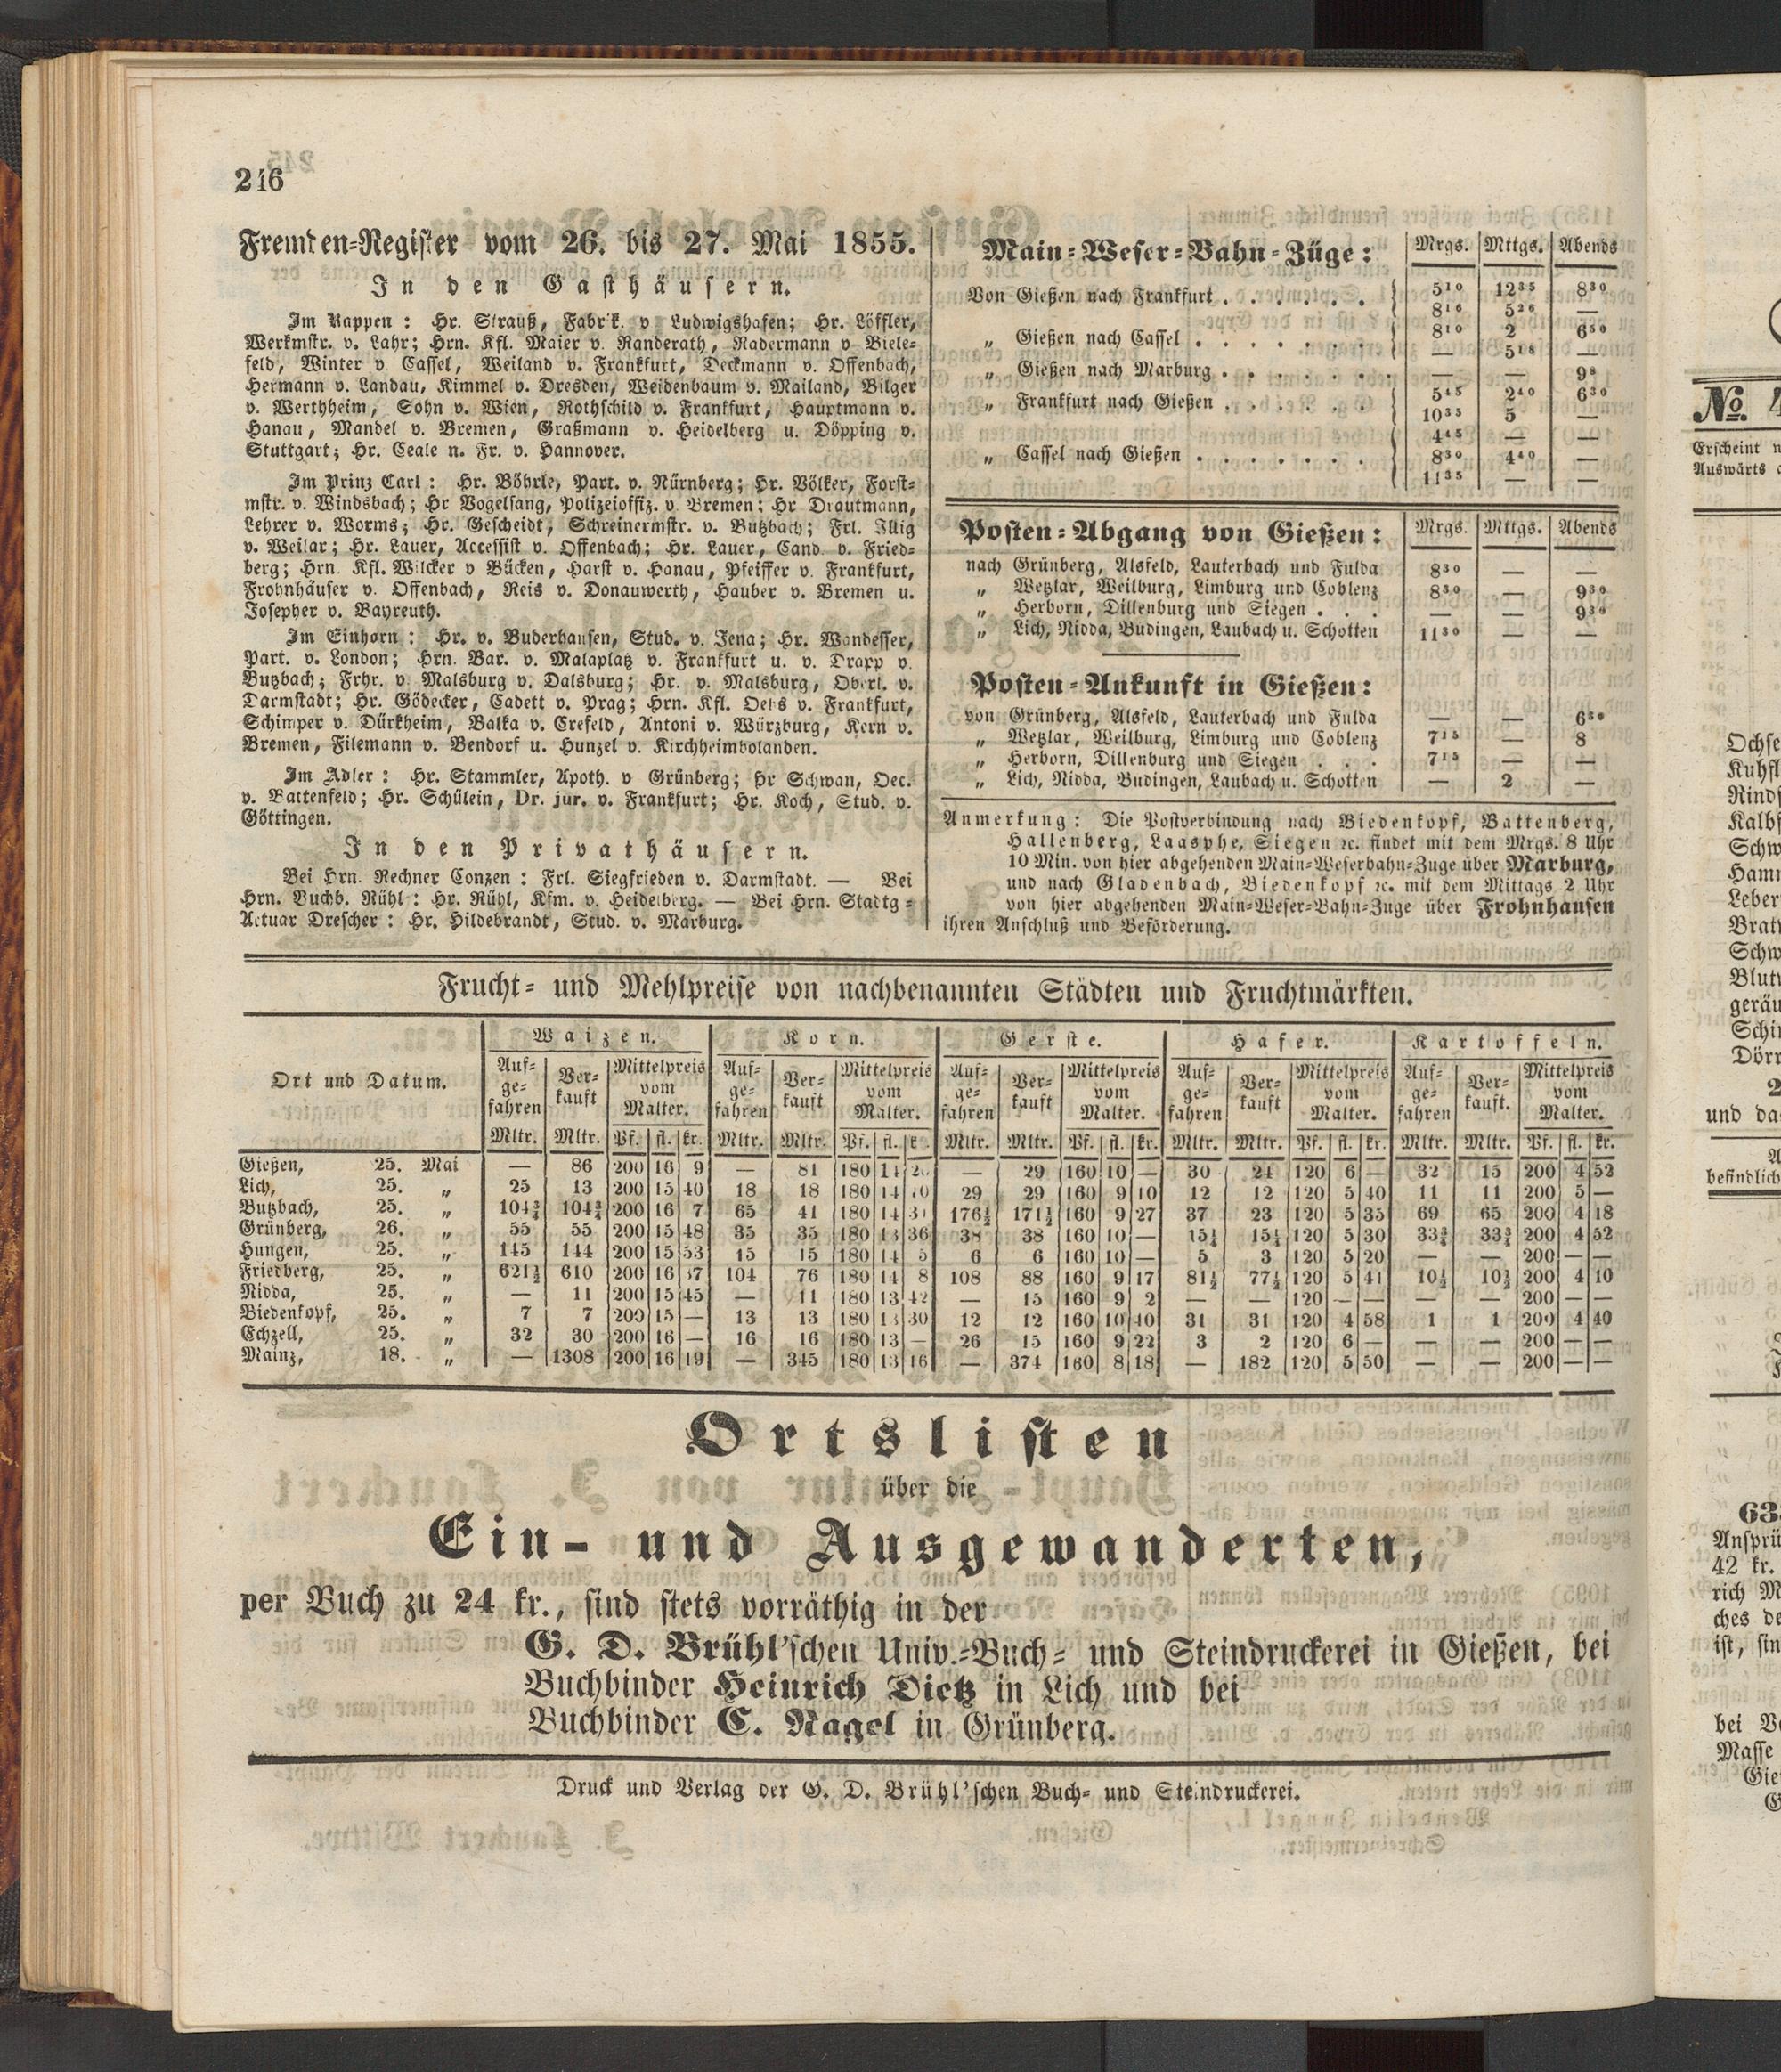 246
Fremden-Register vom 26. bis 27. Mai 1855.
In den Gasthäusern.
Im Rappen: Hr. Strauß, Fabrik. v Ludwigshafen; Hr. Löffler,
Werkmstr. v. Lahr; Hrn. Kfl. Maier v. Randerath, Radermann v Biele-
feld, Winter v Cassel, Weiland v. Frankfurt, Deckmann v. Offenbach,
Hermann v. Landau, Kimmel v. Dresden, Weidenbaum v. Mailand, Bilger
v. Werthheim, Sohn v. Wien, Rothschild v. Frankfurt, Hauptmann v.
Hanau, Mandel v. Bremen, Graßmann v. Heidelberg u. Döpping v.
Stuttgart; Hr. Ceale n. Fr. v. Hannover.
Im Prinz Carl: Hr. Böhrle, Part. v. Nürnberg; Hr. Völker, Forst-
mstr. v. Windsbach; Hr Vogelsang, Polizeioffiz. v Bremen; Hr Drautmann,
Lehrer v. Worms; Hr. Gescheidt, Schreinermstr. v. Butzbach; Frl. Illig
v. Weilar; Hr. Lauer, Accessist v. Offenbach; Hr. Lauer, Cand. v. Fried-
berg; Hrn Kfl. Wilcker v Bücken, Harst v. Hanau, Pfeiffer v. Frankfurt,
Frohnhäuser v. Offenbach, Reis v. Donauwerth, Hauber v. Bremen u.
Josepher v. Bayreuth.
Im Einhorn: Hr. v. Buderhausen, Stud. v. Jena; Hr. Wandesser,
Part. v. London; Hrn. Bar. v. Malaplatz v. Frankfurt u. v. Drapp v.
Butzbach; Frhr. v. Malsburg v. Dalsburg; Hr. v. Malsburg, Oberl. v.
Darmstadt; Hr. Gödecker, Cadett v. Prag; Hrn. Kfl. Oehs v. Frankfurt,
Schimper v. Dürkheim, Balka v. Crefeld, Antoni v. Würzburg, Kern v.
Bremen, Filemann v. Bendorf u. Hunzel v. Kirchheimbolanden.
Im Adler: Hr. Stammler, Apoth. v Grünberg; Hr Schwan, Oec.
v. Battenfeld; Hr. Schülein, Dr. jur. v. Frankfurt; Hr. Koch, Stud. v.
Göttingen.
In den Privathäusern.
Bei Hrn. Rechner Conzen: Frl. Siegfrieden v. Darmstadt. — Bei
Hrn. Buchb. Rühl: Hr. Rühl, Kfm. v. Heidelberg. — Bei Hrn. Stadtg-
Actuar Drescher: Hr. Hildebrandt, Stud. v. Marburg.
Main-Weser-Bahn-Züge: Mrgs. Mttgs. Abends
Von Gießen nach Frankfurt . . . . . . { 5¹⁰ 12³⁵ 8³⁰
8¹⁶ 5²⁶ —
„ Gießen nach Cassel . . . . . . . { 8¹⁰ 2 6⁵⁰
— 5¹⁸ —
„ Gießen nach Marburg . . . . . . — — 9⁸
„ Frankfurt nach Gießen . . . . . . { 5⁴⁵ 2⁴⁰ 6³⁰
10³⁵ 5 —
4⁴⁵ — —
„ Cassel nach Gießen . . . . . . . { 8³⁰ 4⁴⁰ —
11³⁵ — —
Posten-Abgang von Gießen: Mrgs. Mttgs. Abends
nach Grünberg, Alsfeld, Lauterbach und Fulda 8³⁰ — —
„ Wetzlar, Weilburg, Limburg und Coblenz 8³⁰ — 9³⁰
„ Herborn, Dillenburg und Siegen . . . — — 9³⁰
„ Lich, Nidda, Budingen, Laubach u. Schotten 11³⁰ — —
Posten-Ankunft in Gießen:
von Grünberg, Alsfeld, Lauterbach und Fulda — — 6⁵⁰
„ Wetzlar, Weilburg, Limburg und Coblenz 7¹⁵ — 8
„ Herborn, Dillenburg und Siegen . . . 7¹⁵ — —
„ Lich, Nidda, Budingen, Laubach u. Schotten — 2 —
Anmerkung: Die Postverbindung nach Biedenkopf, Battenberg,
Hallenberg, Laasphe, Siegen ꝛc. findet mit dem Mrgs. 8 Uhr
10 Min. von hier abgehenden Main-Weserbahn-Zuge über Marburg,
und nach Gladenbach, Biedenkopf ꝛc. mit dem Mittags 2 Uhr
von hier abgehenden Main-Weser-Bahn-Zuge über Frohnhausen
ihren Anschluß und Beförderung.
Frucht- und Mehlpreise von nachbenannten Städten und Fruchtmärkten.
Ort und Datum. Waizen. Korn. Gerste. Hafer. Kartoffeln.
Auf-gefahren Verkauft Mittelpreis vom Malter. Auf-gefahren Verkauft Mittelpreis vom Malter. Auf-gefahren Verkauft Mittelpreis vom Malter. Auf-gefahren Verkauft Mittelpreis vom Malter. Auf-gefahren Verkauft. Mittelpreis vom Malter.
Mltr. Mltr. Pf. fl. kr. Mltr. Mltr. Pf. fl. k Mltr. Mltr. Pf. fl. kr. Mltr. Mltr. Pf. fl. kr. Mltr. Mltr. Pf. fl. kr.
Gießen, 25. Mai — 86 200 16 9 — 81 180 14 — 29 160 10 — 30 24 120 6 — 32 15 200 4 52
Lich, 25. „ 25 13 200 15 40 18 18 180 14 29 29 160 9 10 12 12 120 5 40 11 11 200 5 —
Butzbach, 25. „ 104¾ 104¾ 200 16 7 65 41 180 14 176½ 171½ 160 9 27 37 23 120 5 35 69 65 200 4 18
Grünberg, 26. „ 55 55 200 15 48 35 35 180 13 36 38 38 160 10 — 15¼ 15¼ 120 5 30 33¾ 33¾ 200 4 52
Hungen, 25. „ 145 144 200 15 53 15 15 180 14 5 6 6 160 10 — 5 3 120 5 20 — — 200 — —
Friedberg, 25. „ 621½ 610 200 16 37 104 76 180 14 8 108 88 160 9 17 81½ 77½ 120 5 41 10½ 10½ 200 4 10
Nidda, 25. „ — 11 200 15 45 — 11 180 13 42 — 15 160 9 2 — — 120 — — — — 200 — —
Biedenkopf, 25. „ 7 7 200 15 — 13 13 180 13 30 12 12 160 10 40 31 31 120 4 58 1 1 200 4 40
Echzell, 25. „ 32 30 200 16 — 16 16 180 13 — 26 15 160 9 22 3 2 120 6 — — — 200 — —
Mainz, 18. „ — 1308 200 16 19 — 345 180 13 16 — 374 160 8 18 — 182 120 5 50 — — 200 — —
Ortslisten
über die
Ein- und Ausgewanderten,
per Buch zu 24 kr., sind stets vorräthig in der
G. D. Brühl'schen Univ.-Buch- und Steindruckerei in Gießen, bei
Buchbinder Heinrich Dietz in Lich und bei
Buchbinder C. Nagel in Grünberg.
Druck und Verlag der G. D. Brühl'schen Buch- und Steindruckerei.
№ 4
Erscheint
Auswärts
Ochse
Kuhfl
Rinds
Kalbf
Schw
Hamm
Leber
Bratw
Schw
Blutw
geräu
Schi
Dörr
und da
befindlich
63
Ansprü
42 kr.
rich M
ches de
ist, sin
bei V
Masse
Gie